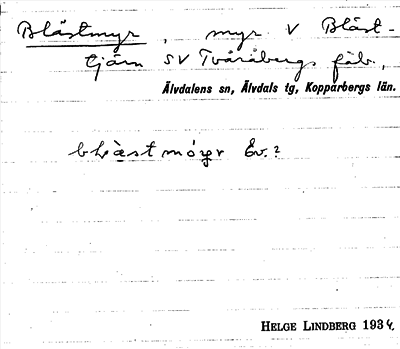 Blästmyr, myr V Bläst-
tjärn SV Tvåråbergs fäb.,
Älvdalens sn, Älvdals tg, Kopparbergs län.
Ev.?
HELGE LINDBERG 1934.